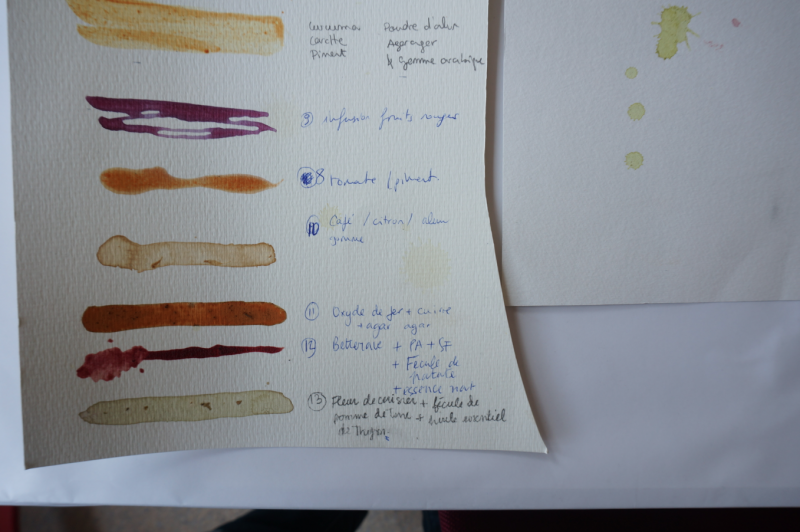 Poudre d'alun
Carotte Agar agar
Piment & gomme arabique
9 infusion fruits rouges
8 tomate / piment
10 Café / citron / alun
gomme
11 Oxyde de fer + cuivre
+ agar agar
12 Betterave + PA + SF
+ Fécule de
patate
+
13 Fleur de cerisier + fécule de
pomme de terre + huile essentiel
de Thym